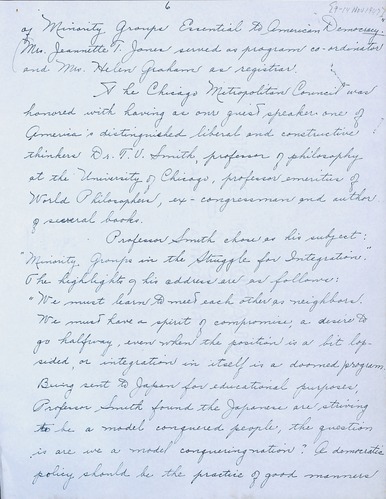 6
of Minority Groups Essential to American Democracy.
(Mrs. Jeannette T. Jones served as program co-ordinator
and Mrs. Helen Graham as registrar.
The Chicago Metropolitan Council was
honored with having as our guest speaker one of
America's distinguished liberal and constructive
thinkers Dr. T. V. Smith, professor of philosophy
at the University of Chicago, professor emeritus of
World Philosophers, ex-congressman and author
of several books.
Professor Smith chose as his subject:
"Minority Groups in the Struggle for Integration."
The highlights of his address are as follows:
"We must learn to meet each other as neighbors.
We must have a spirit of compromise, a desire to
go halfway, even when the position is a bit lop-
sided, or integration in itself is a doomed program.
Being sent to Japan for educational purposes,
Professor Smith found the Japanese are striving
to be a model conquered people, the question
is are we a model conquering nation? A democratic
policy should be the practice of good manners